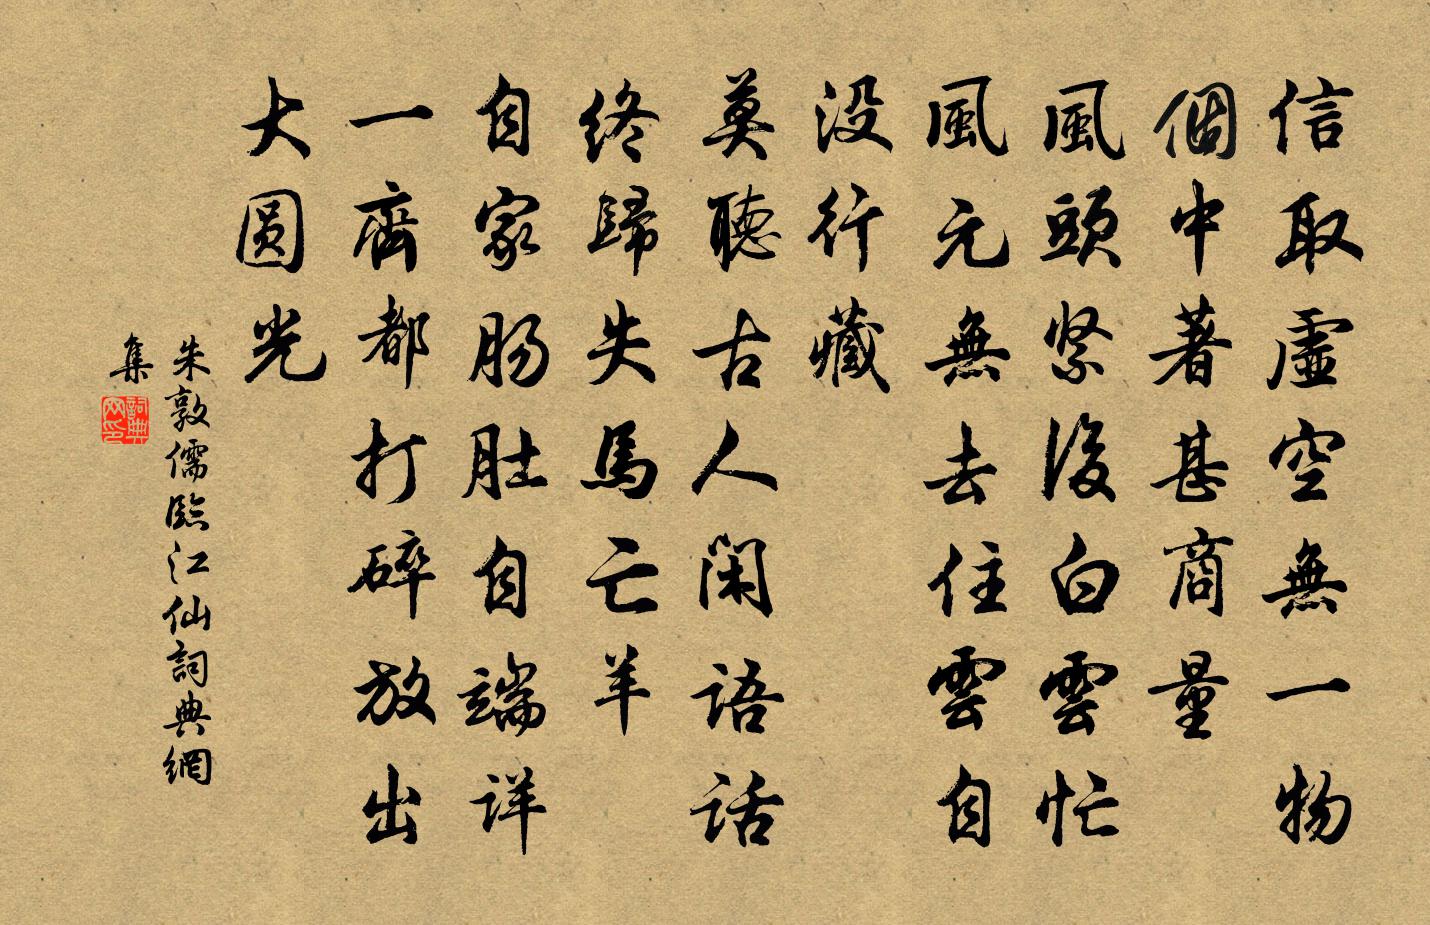 信取虛空無一物
個中著甚商量
風頭緊後白雲忙
風元無去住雲自
没行藏
莫聽古人閑語話
終歸失馬亡羊
自家肠肚自端详
一齊都打碎放出
大圆光
朱敦儒臨江仙詞典網
集
詞典
网印